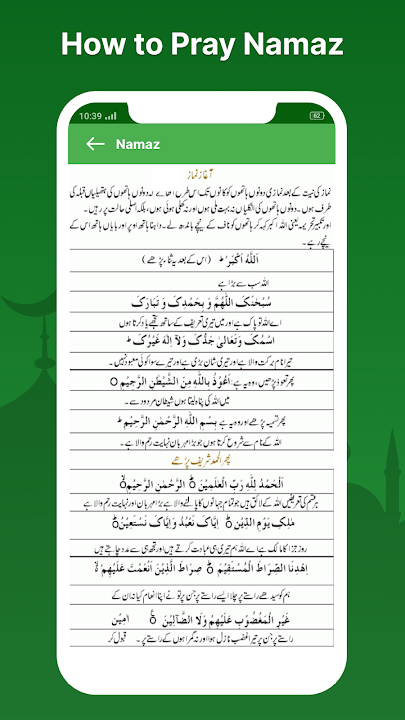 How to Pray Namaz
10:39
62
Namaz
آغازِ نماز
نماز کی نیت کے بعد نمازی دونوں ہاتھوں کو کانوں تک اس طرح اٹھائے کہ دونوں ہاتھوں کی ہتھیلیاں قبلہ کی
طرف ہوں۔ دونوں ہاتھوں کی انگلیاں نہ بہت ملی ہوں اور نہ کھلی ہوئی ہوں، بلکہ اصلی حالت پر رہیں۔
اور تکبیر تحریمہ یعنی اللہ اکبر کہہ کر ہاتھوں کو ناف کے نیچے باندھ لے۔ داہنا ہاتھ اوپر اور بایاں ہاتھ اس کے
نیچے رہے۔
اَللّٰهُ اَکْبَرُ ؕ (اس کے بعد یہ ثنا، پڑھے)
اللہ سب سے بڑا ہے
سُبْحٰنَکَ اللّٰهُمَّ وَ بِحَمْدِکَ وَ تَبَارَکَ
اے اللہ تو پاک ہے اور میں تیری تعریف کے ساتھ تجھے یاد کرتا ہوں
اسْمُکَ وَتَعَالٰی جَدُّکَ وَلَآ اِلٰهَ غَیْرُکَ ؕ
تیرا نام برکت والا ہے اور تیری شان بڑی ہے اور تیرے سوا کوئی معبود نہیں۔
پھر تعوذ پڑھیں، وہ یہ ہے اَعُوْذُ بِاللّٰهِ مِنَ الشَّیْطٰنِ الرَّجِیْمِ ○
میں اللہ کی پناہ لیتا ہوں شیطان مردود سے۔
پھر تسمیہ پڑھے اور وہ یہ ہے بِسْمِ اللّٰهِ الرَّحْمٰنِ الرَّحِیْمِ ؕ
اللہ کے نام سے شروع کرتا ہوں جو بڑا مہربان نہایت رحم والا ہے۔
پھر الحمد شریف پڑھے
اَلْحَمْدُ لِلّٰهِ رَبِّ الْعٰلَمِیْنَ ۙ الرَّحْمٰنِ الرَّحِیْمِ ۙ
ہر قسم کی تعریفیں اللہ کے لائق ہیں جو تمام جہانوں کا پالنے والا ہے بڑا مہربان اور نہایت رحم والا ہے
مٰلِکِ یَوْمِ الدِّیْنِ ؕ اِیَّاکَ نَعْبُدُ وَاِیَّاکَ نَسْتَعِیْنُ ؕ
روز جزا کا مالک ہے اے اللہ ہم تیری ہی عبادت کرتے ہیں اور تجھ ہی سے مدد چاہتے ہیں
اِهْدِنَا الصِّرَاطَ الْمُسْتَقِیْمَ ۙ صِرَاطَ الَّذِیْنَ اَنْعَمْتَ عَلَیْهِمْ ۙ
ہم کو سیدھے راستے پر چلا ایسے راستے پر جن پر تو نے اپنا انعام کیا نہ ان کے
غَیْرِ الْمَغْضُوْبِ عَلَیْهِمْ وَلَا الضَّآلِّیْنَ ۠ اٰمِیْن
راستے پر جن پر تیرا غضب نازل ہوا اور نہ گمراہوں کے راستے پر۔ قبول کر